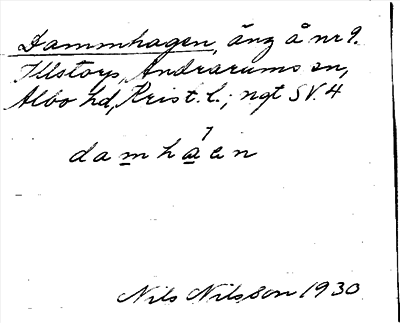 Dammhagen, äng å nr 9.
Illstorp, Andrarums sn,
Albo hd, Krist. l.; ngt SV. 4
damhain
Nils Nilsson 1930